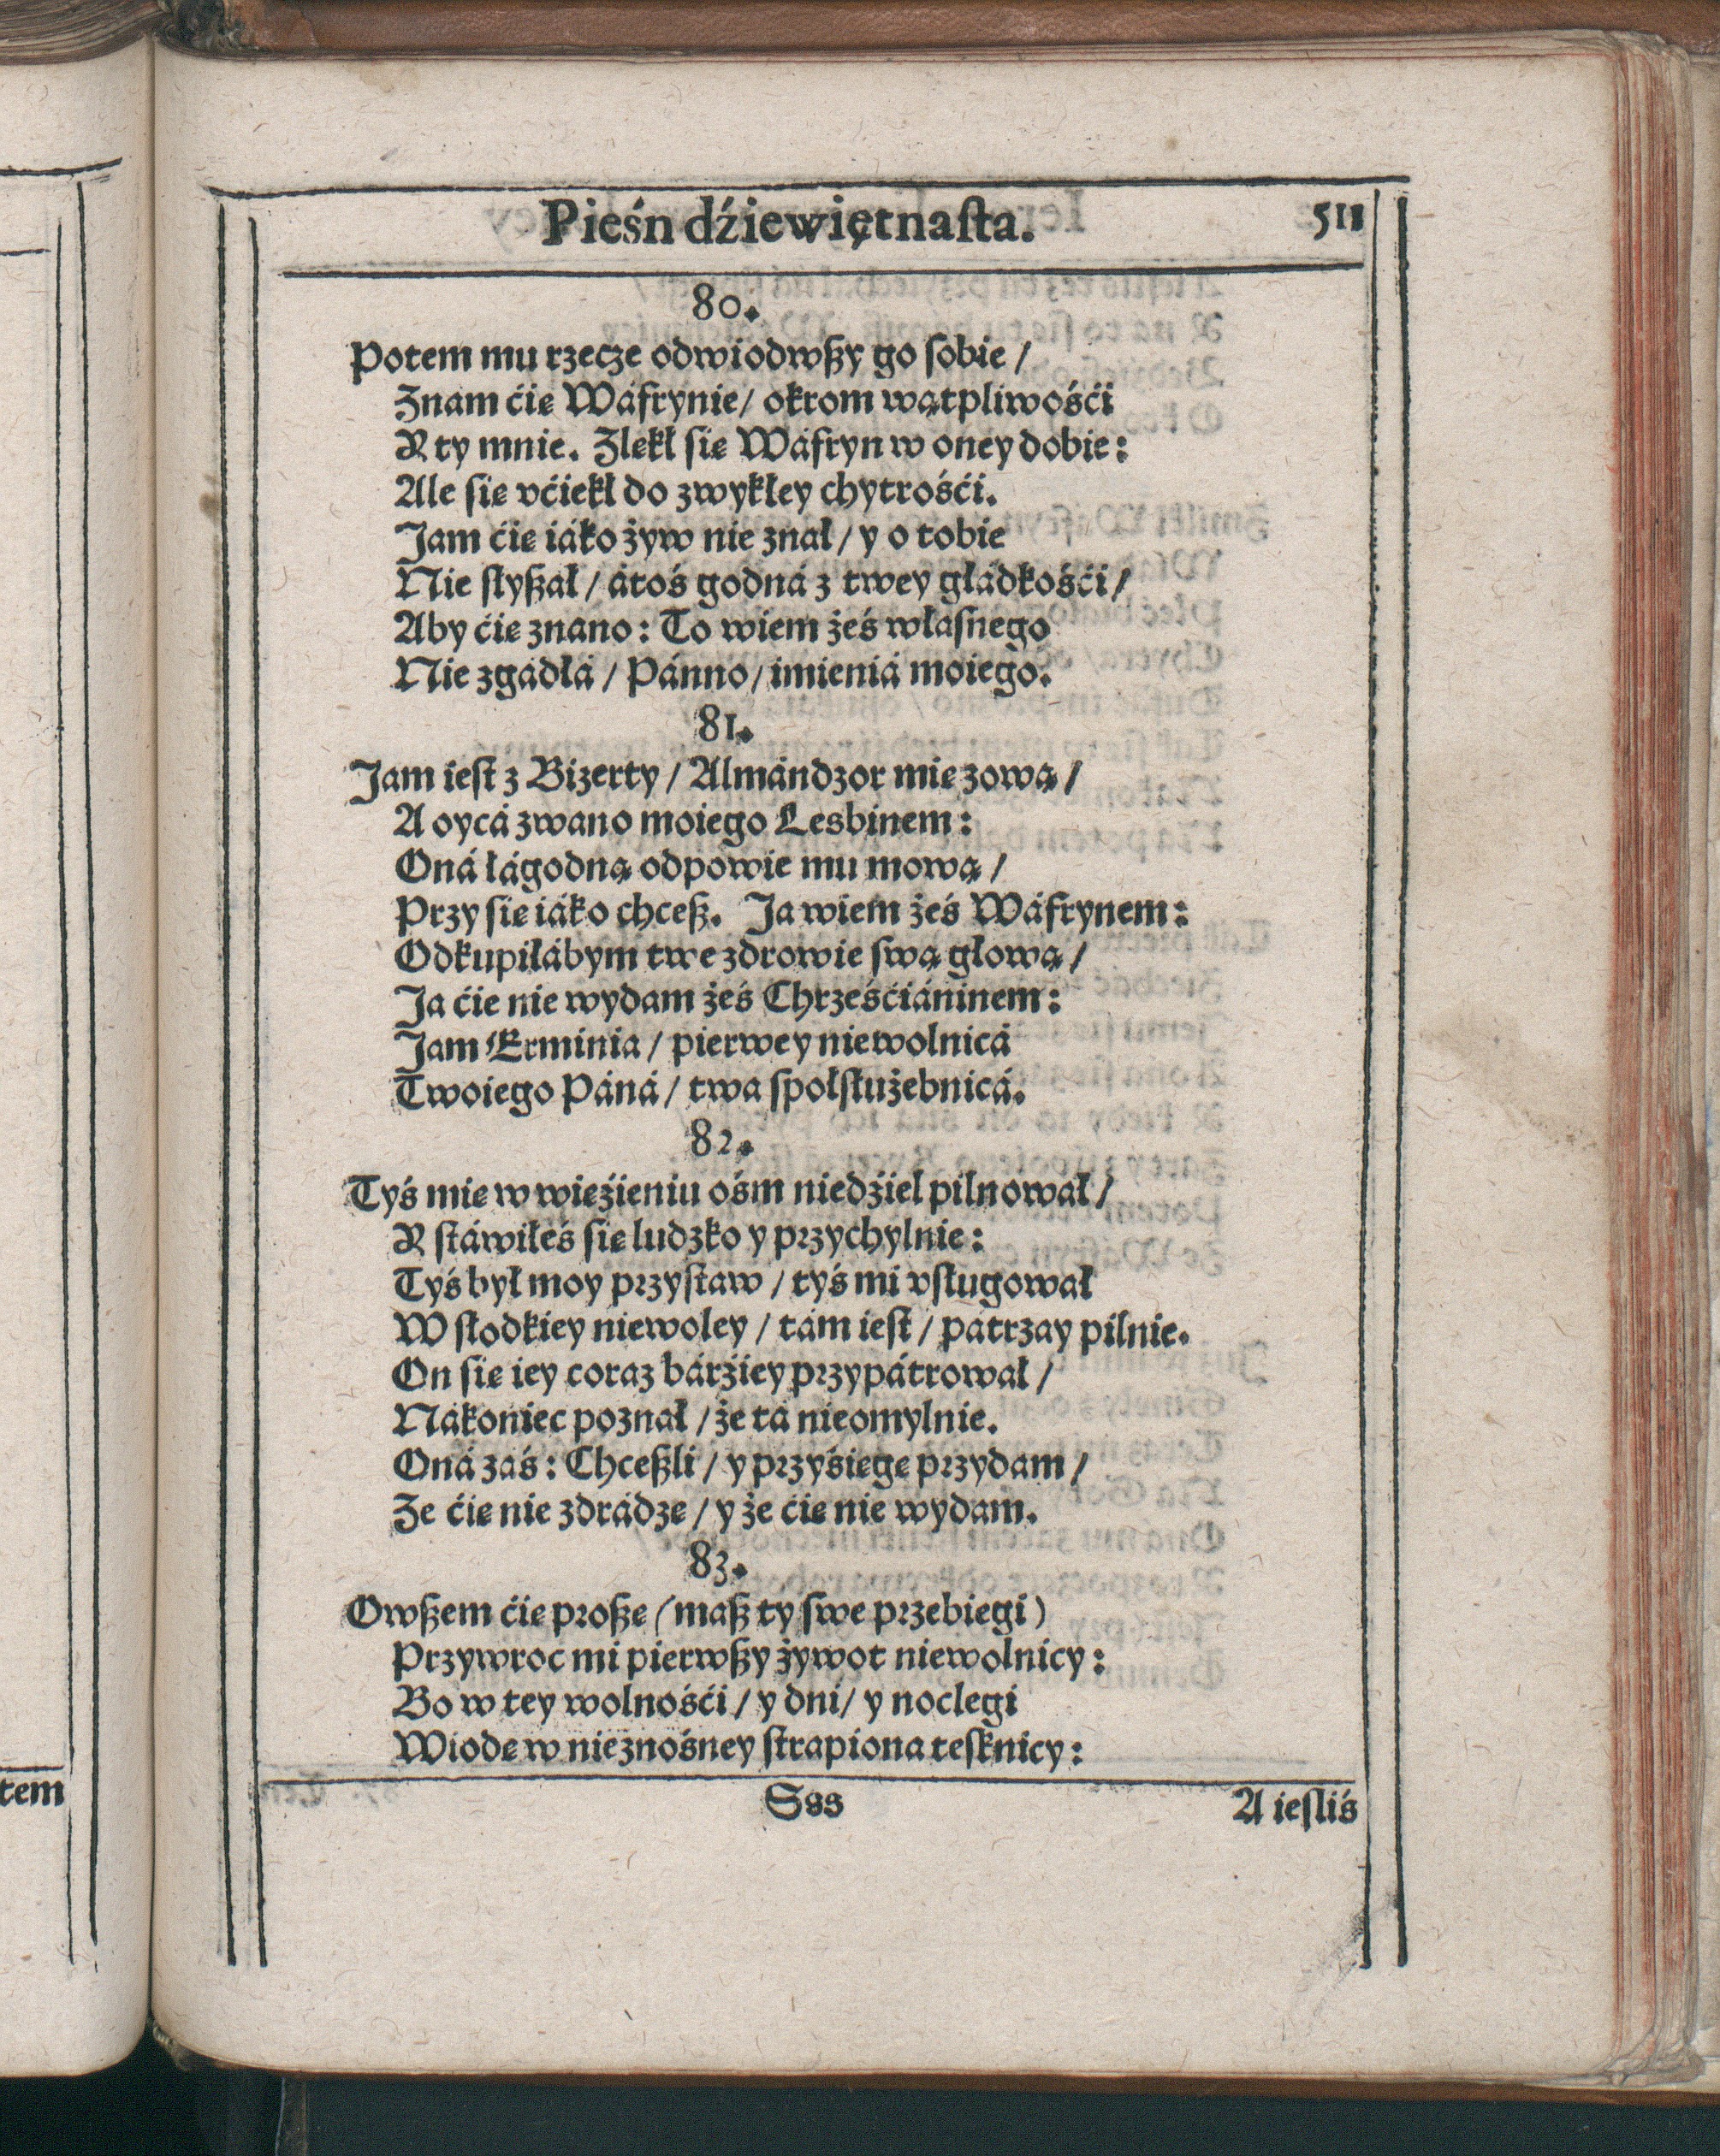 Pieśń dźiewiętnaſta. 511
80.
Potem mu rzecze odwiodwßy go ſobie /
Znam ćię Wáfrynie / okrom wątpliwośći
Y ty mnie. Zlękł się Wáfryn w oney dobie:
Ale się vćiekł do zwykłey chytrośći.
Jam ćię iáko żyw nie znał / y o tobie
Nie słyßał / átoś godná z twey głádkośći /
Aby ćię znano: To wiem żeś własnego
Nie zgádłá / Pánno / imieniá moiego.
81.
Jam iest z Bizerty / Almándzor mię zową /
A oycá zwano moiego Lesbinem:
Oná łágodną odpowie mu mową /
Przy się iáko chceß. Ja wiem żeś Wáfrynem:
Odkupiłábym twe zdrowie swą głową /
Ja ćię nie wydam żeś Chrześćiáninem:
Jam Erminia / pierwey niewolnicá
Twoiego Páná / twa społsłużebnicá.
82.
Tyś mię w więźieniu ośm niedźiel pilnował /
Y stáwiłeś się ludzko y przychylnie:
Tyś był moy przystaw / tyś mi vsługował
W słodkiey niewoley / tám iest / pátrzay pilnie.
On się iey coraz bárźiey przypátrował /
Nákoniec poznał / że tá nieomylnie.
Oná záś: Chceßli / y przyśięgę przydam /
Ze ćię nie zdrádzę / y że ćię nie wydam.
83.
Owßem ćię proßę (maß ty swe przebiegi)
Przywroc mi pierwßy żywot niewolnicy:
Bo w tey wolnośći / y dni / y noclegi
Wiodę w nieznośney strapiona tesknicy:
Sss A iesliś
tem